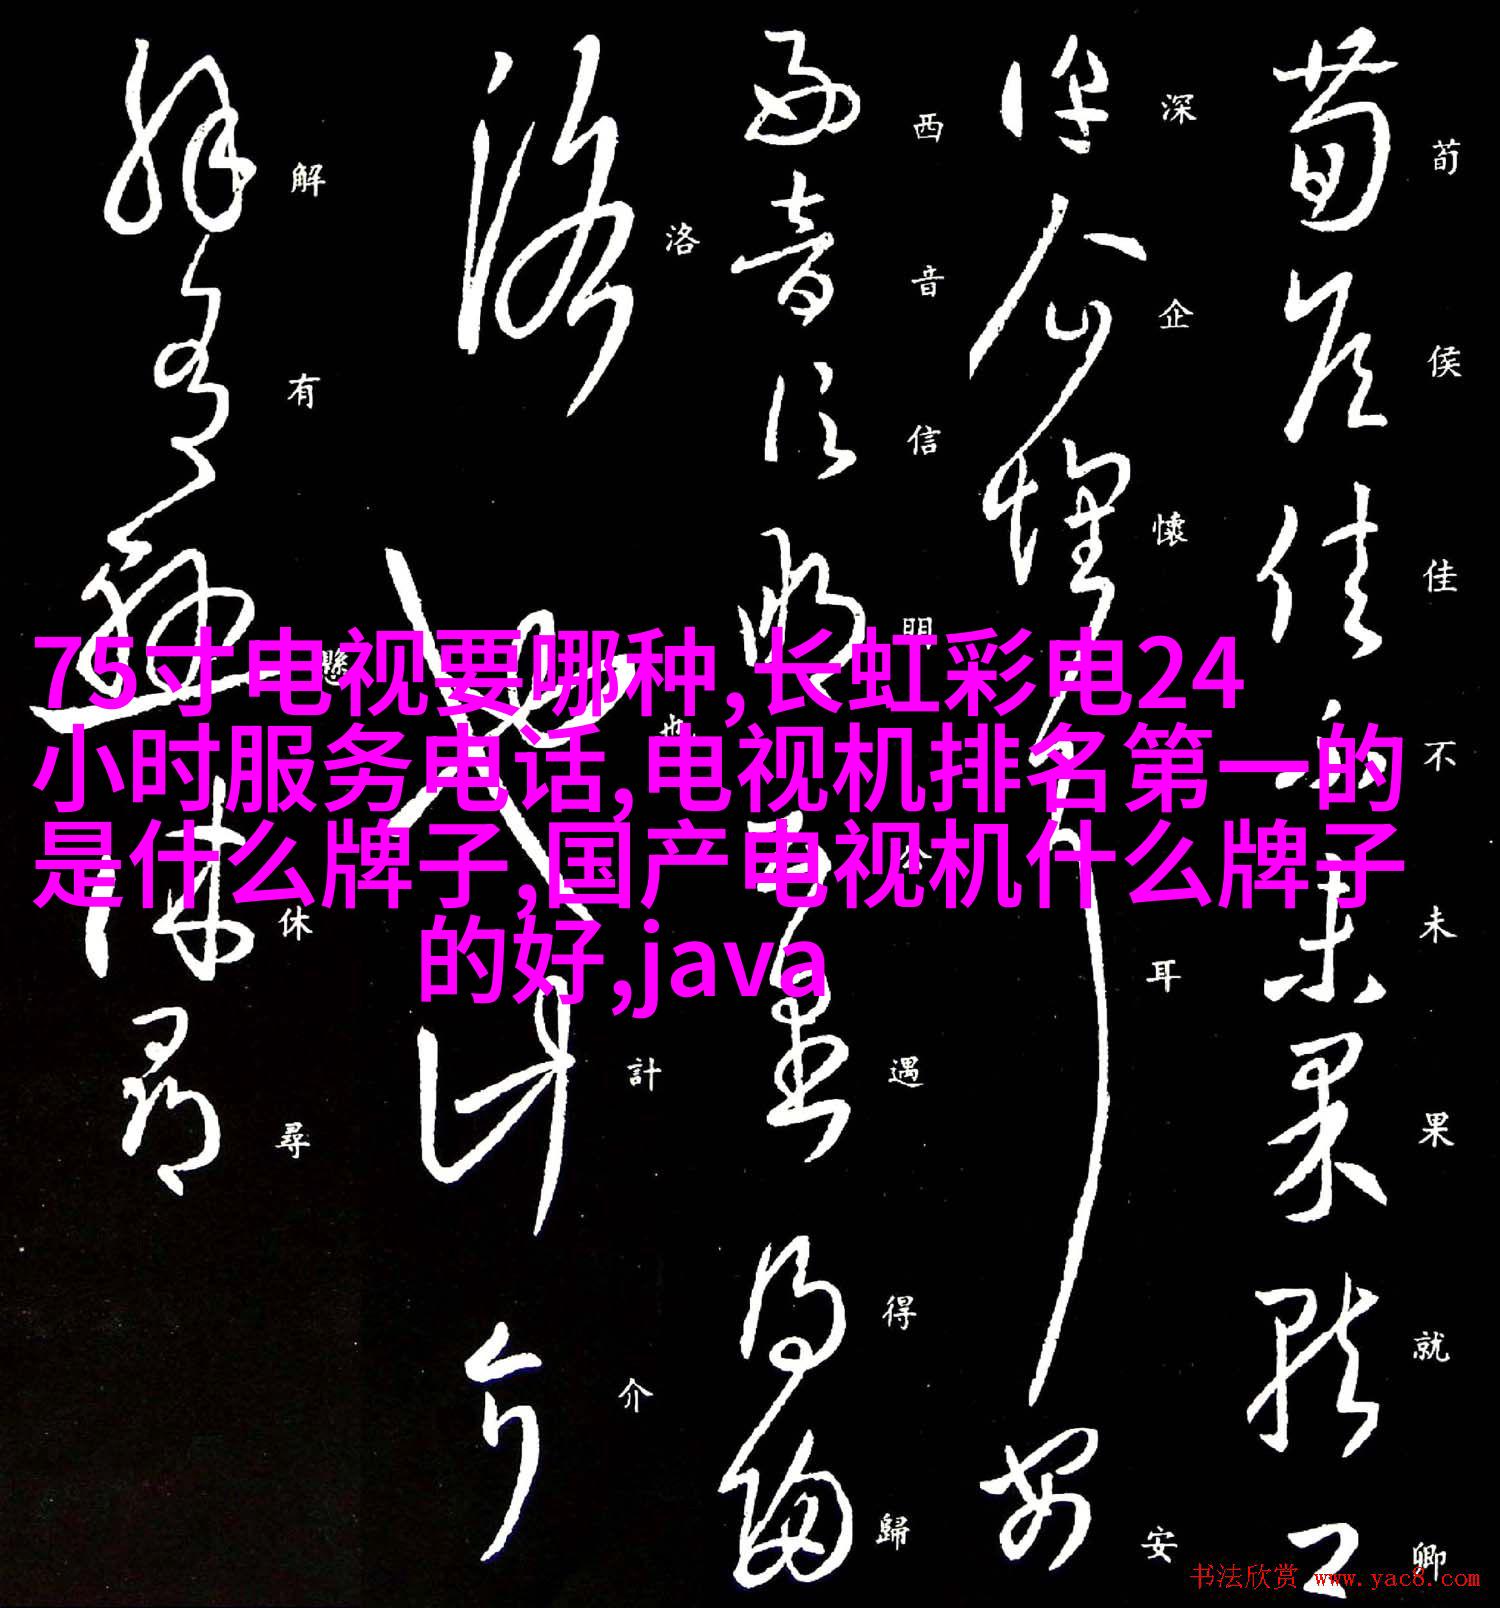 荀侯佳不未果就卿
深企懷耳安
西音信明公遇得歸
洛也計介
解有懸休尋
75寸电视要哪种,长虹彩电24
小时服务电话,电视机排名第一的
是什么牌子,国产电视机什么牌子
的好,java
书法欣赏 www.yac8.com